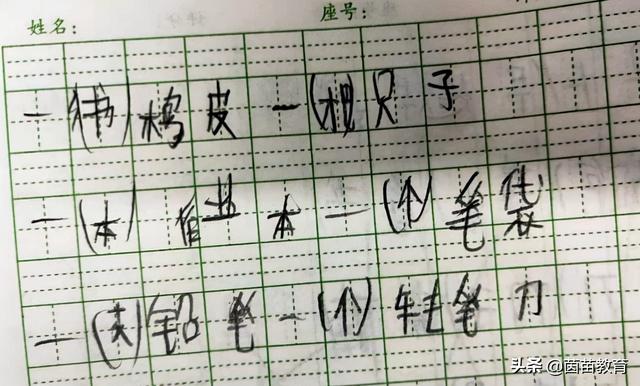 姓名： 座号：
一( )橡皮 一( )只子
一(本) 作业本 一(个)笔袋
一(支)铅笔 一(个) 笔刀
头条 @茵苗教育